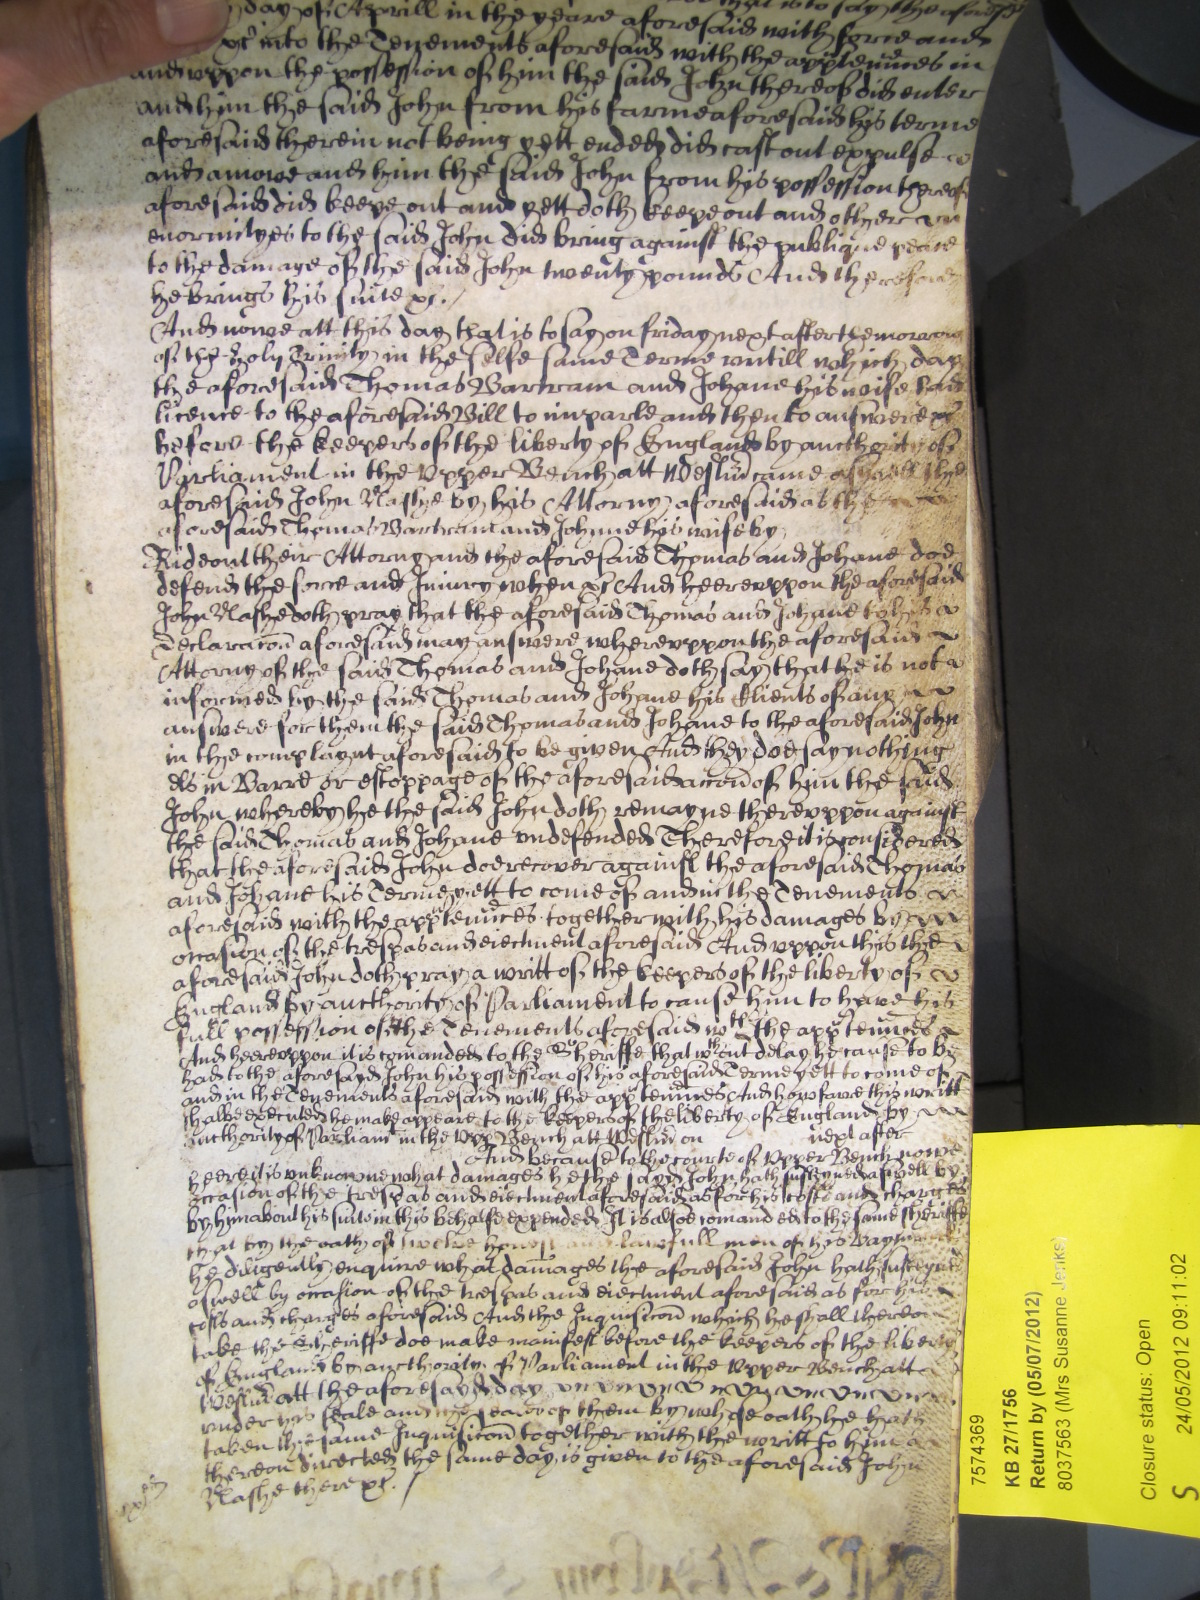 day of Aprill in the yeare aforesaid with force and
&c into the Tenements aforesaid with the apptennces in
and vppon the possession of him the said John thereof did enter
and him the said John from his farme aforesaid his terme
aforesaid therein not being yett ended did cast out expulse
and amove and him the said John from his possession thereof
aforesaid did keepe out and yett doth keepe out and other
enormityes to the said John did bring against the publique peace
to the damage of the said John twenty pounds And therefore
he brings his suite &c. /
And nowe att this day that is to say on friday next after the morrow
of the Holy Trinity in the selfe same Terme vntill which day
the aforesaid Thomas Bartram and Johane his wife had
licence to the aforesaid Bill to imparle and then to answere &c
before the keepers of the liberty of England by aucthority of
Parliament in the Vpper Bench att Westm came aswell the
aforesaid John Nashe by his Attorny aforesaid as the
aforesaid Thomas Bartram and Johane his wife by
Rideout their Attorny and the aforesaid Thomas and Johane doe
defend the force and Iniury when &c And heerevppon the aforesaid
John Nashe doth pray that the aforesaid Thomas and Johane to his
declaracon aforesaid may answere wherevppon the aforesaid
Attorny of the said Thomas and Johane doth say that he is not
informed by the said Thomas and Johane his Clients of any
answere for them the said Thomas and Johane to the aforesaid John
in the complaynt aforesaid to be given And they doe say nothing
els in Barre or estoppage of the aforesaid accon of him the said
John whereby he the said John doth remayne therevppon against
the said Thomas and Johane vndefended Therefore it is considered
that the aforesaid John doe recover against the aforesaid Thomas
and Johane his Terme yett to come of and in the Tenements
aforesaid with the apptennces together with his damages by
occasion of the trespas and eiectment aforesaid And vppon this the
aforesaid John doth pray a writt of the keepers of the liberty of
England by aucthority of Parliament to cause him to have his
full possession of the Tenements aforesaid wth the apptennces
And heerevppon it is comanded to the Sheriffe that wthout delay he cause to be
had to the aforesayd John his possession of his aforesaid Terme yett to come of
and in the Tenements aforesaid with the apptennces And how farre this writt
shalbe executed he make appeare to the keepers of the liberty of England by
aucthority of Parliamt in the Vpp Bench att Westm on next after
And because to the courte of Vpper Bench nowe
heere it is unknowne what damages he the sayd John hath susteyned aswell by
occasion of the trespas and eiectment aforesaid as for his costs and charges
by him about his suite in this behalfe expended It is alsoe comanded to the same Sheriffe
that by the oath of twelve honest and lawfull men of his Baylywick
he diligently enquire what damages the aforesaid John hath susteyned
aswell by occasion of the trespas and eiectment aforesaid as for his
costs and charges aforesaid And the Inquisicon which he shall thereon
take the Sheriffe doe make manifest before the keepers of the liberty
of England by aucthority of Parliament in the Vpper Bench att
Westm att the aforesayd day
vnder his seale and the seales of them by whose oath he hath
taken the same Inquisicon together with the writt to him
thereon directed the same day is given to the aforesaid John
Nashe there &c. /
7574369
KB 27/1756
Return by (05/07/2012)
8037563 (Mrs Susanne Jenks)
Closure status: Open
24/05/2012 09:11:02
S